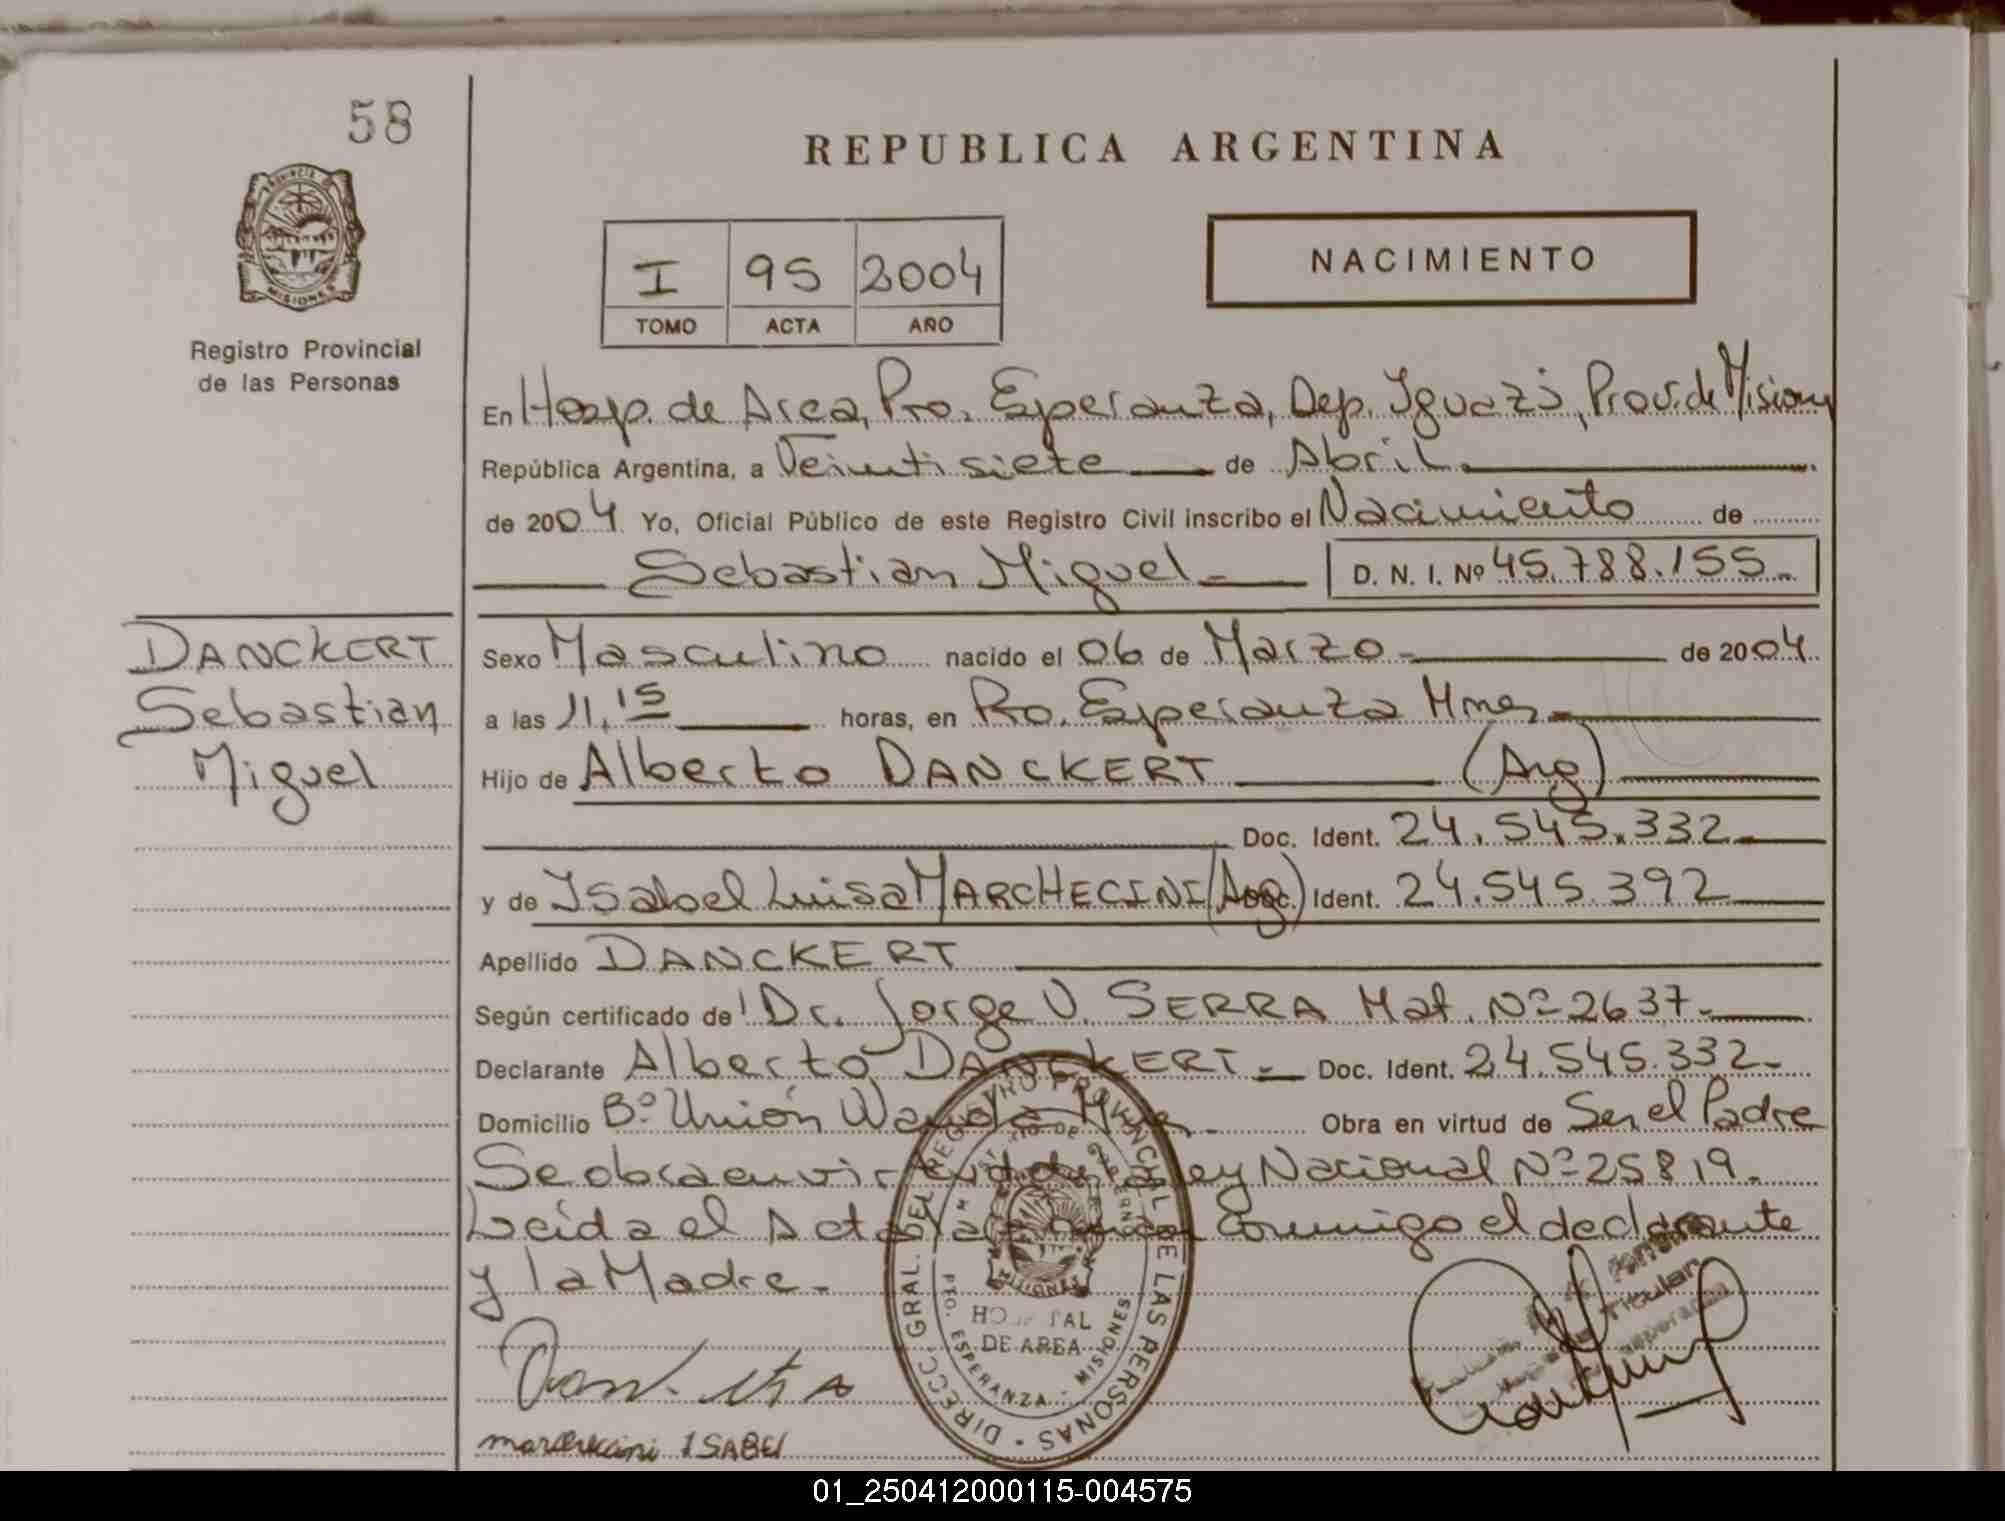 58
REPUBLICA ARGENTINA
PROVINCIA DE
MISIONES
Registro Provincial
de las Personas
I 95 2004
TOMO ACTA AÑO
NACIMIENTO
En Hosp. de Area, Pto. Esperanza, Dep. Iguazú, Prov. de Misiones
República Argentina, a Veintisiete de Abril
de 2004 Yo, Oficial Público de este Registro Civil inscribo el Nacimiento de
Sebastian Miguel D. N. I. Nº 45.788.155
DANCKERT
Sebastian
Miguel
Sexo Masculino nacido el 06 de Marzo de 2004
a las 11,15 horas, en Pto. Esperanza Mnes
Hijo de Alberto DANCKERT (Arg)
Doc. Ident. 24.545.332
y de Isabel Luisa MARCHECINI (Arg) Doc. Ident. 24.545.392
Apellido DANCKERT
Según certificado de Dr. Jorge V. SERRA Mat. Nº 2637
Declarante Alberto DANCKERT Doc. Ident. 24.545.332
Domicilio Bº Unión Wanda Mnes Obra en virtud de Ser el Padre
Se obra en virtud de la Ley Nacional Nº 25819.
Leída el Acta la firman Conmigo el declarante
y la Madre.
DIRECC. GRAL. DEL REGISTRO PROVINCIAL DE LAS PERSONAS
MINISTERIO DE GOBIERNO
MISIONES
HOSPITAL
DE AREA
PTO. ESPERANZA - MISIONES
Titular
marchecini ISABEL
01_250412000115-004575